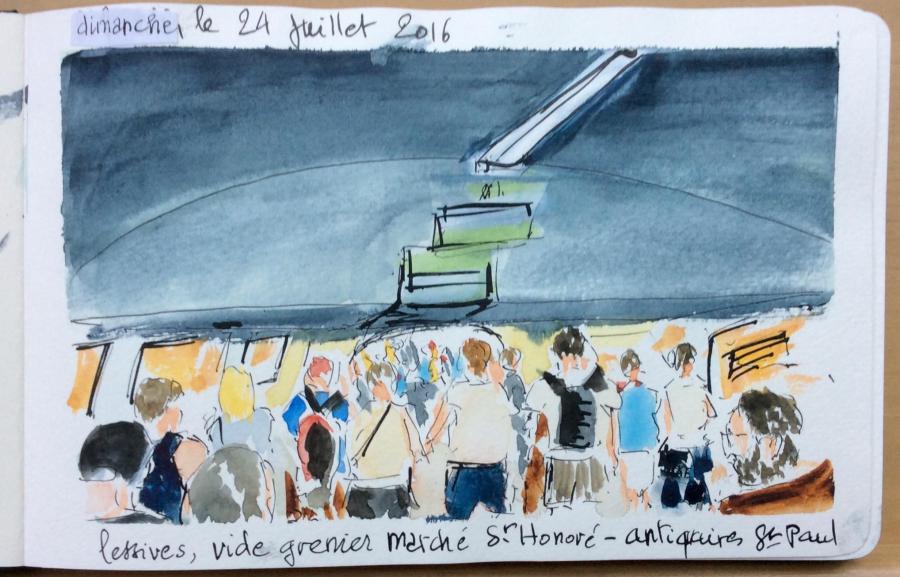 dimanche, le 24 Juillet 2016
lessives, vide grenier marché St Honoré - antiquaires St Paul